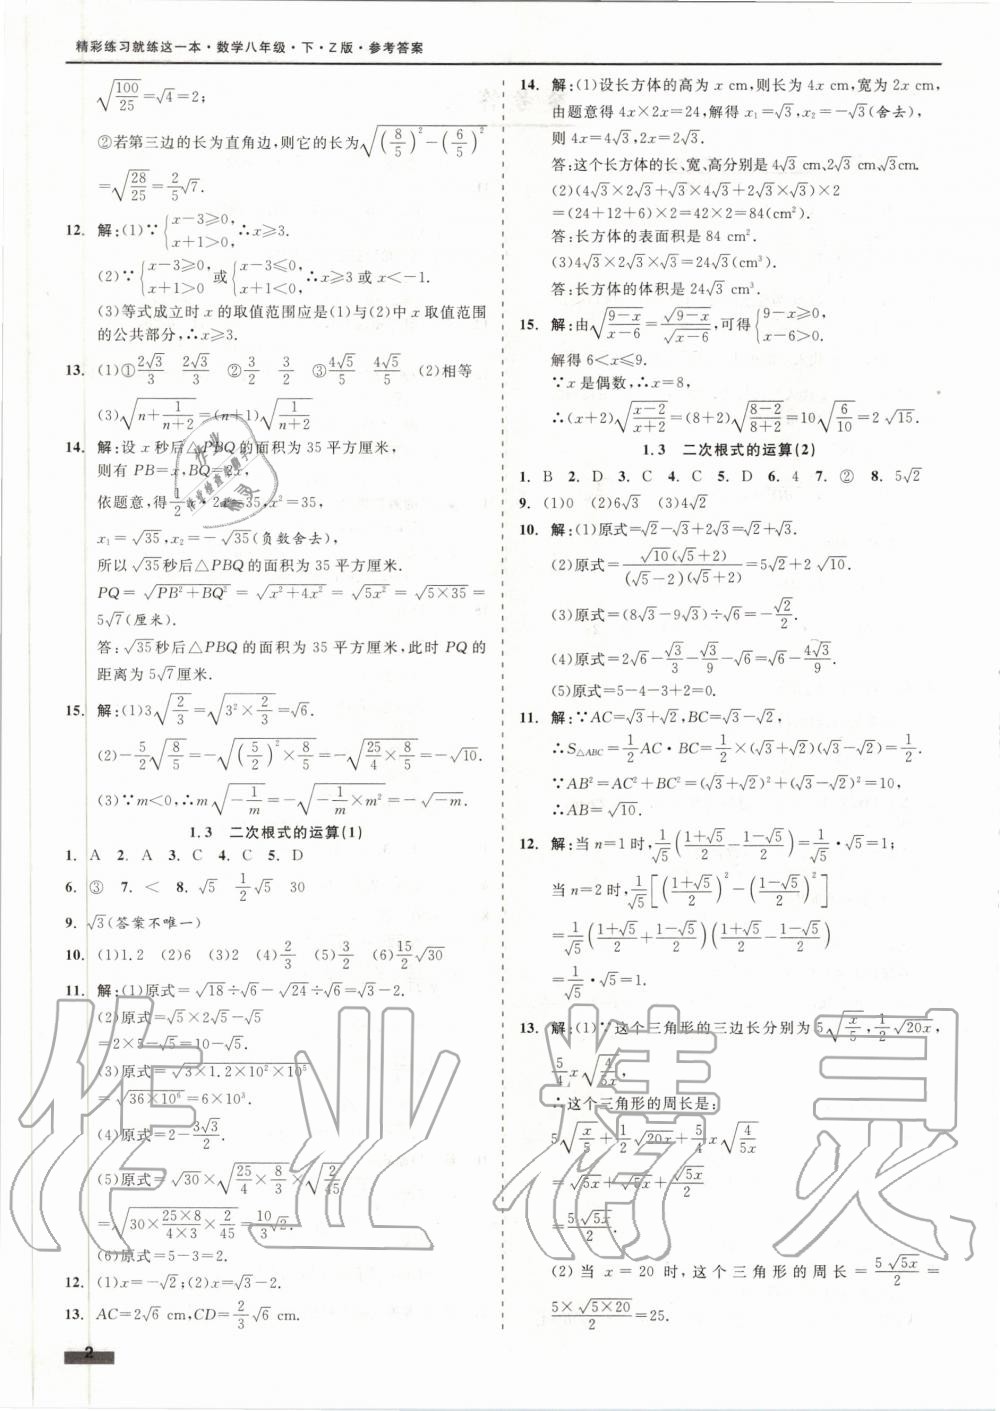 精彩练习就练这一本·数学八年级·下·Z版·参考答案
√(100/25)=√4=2;
②若第三边的长为直角边,则它的长为√((8/5)²-(6/5)²)
=√(28/25)=2/5√7.
12. 解:(1)∵{x-3≥0, x+1>0, ∴x≥3.
(2)∵{x-3≥0, x+1>0 或{x-3≤0, x+1<0, ∴x≥3或x<-1.
(3)等式成立时x的取值范围应是(1)与(2)中x取值范围
的公共部分,∴x≥3.
13. (1)①2√3/3 2√3/3 ②3/2 3/2 ③4√5/5 4√5/5 (2)相等
(3)√(n+1/(n+2))=(n+1)√(1/(n+2))
14. 解:设x秒后△PBQ的面积为35平方厘米,
则有PB=x,BQ=2x,
依题意,得1/2x·2x=35,x²=35,
x₁=√35,x₂=-√35(负数舍去),
所以√35秒后△PBQ的面积为35平方厘米.
PQ=√(PB²+BQ²)=√(x²+4x²)=√(5x²)=√(5×35)=
5√7(厘米).
答:√35秒后△PBQ的面积为35平方厘米,此时PQ的
距离为5√7厘米.
15. 解:(1)3√(2/3)=√(3²×2/3)=√6.
(2)-5/2√(8/5)=-√((5/2)²×8/5)=-√(25/4×8/5)=-√10.
(3)∵m<0,∴m√(-1/m)=-√(-1/m×m²)=-√(-m).
1.3 二次根式的运算(1)
1. A 2. A 3. C 4. C 5. D
6. ③ 7. < 8. √5 1/2√5 30
9. √3(答案不唯一)
10. (1)1.2 (2)6 (3)2 (4)2/3 (5)3/2 (6)15/2√30
11. 解:(1)原式=√18÷√6-√24÷√6=√3-2.
(2)原式=√5×2√5-√5
=2×5-√5=10-√5.
(3)原式=√(3×1.2×10²×10⁵)
=√(36×10⁶)=6×10³.
(4)原式=2-3√3/2.
(5)原式=√30×√(25/4×8/3)×√(2/45)
=√(30×(25×8)/(4×3)×2/45)=10/3√2.
(6)原式=5-3=2.
12. (1)x=-√2;(2)x=√3-2.
13. AC=2√6 cm,CD=2/3√6 cm.
2
14. 解:(1)设长方体的高为x cm,则长为4x cm,宽为2x cm,
由题意得4x×2x=24,解得x₁=√3,x₂=-√3(舍去),
则4x=4√3,2x=2√3.
答:这个长方体的长、宽、高分别是4√3 cm、2√3 cm、√3cm.
(2)(4√3×2√3+√3×4√3+2√3×√3)×2
=(24+12+6)×2=42×2=84(cm²).
答:长方体的表面积是84 cm².
(3)4√3×2√3×√3=24√3(cm³).
答:长方体的体积是24√3 cm³.
15. 解:由√((9-x)/(x-6))=√(9-x)/√(x-6),可得{9-x≥0, x-6>0.
解得6<x≤9.
∵x是偶数,∴x=8,
∴(x+2)√((x-2)/(x+2))=(8+2)√((8-2)/(8+2))=10√(6/10)=2√15.
1.3 二次根式的运算(2)
1. B 2. D 3. C 4. C 5. D 6. 4 7. ② 8. 5√2
9. (1)0 (2)6√3 (3)4√2
10. 解:(1)原式=√2-√3+2√3=√2+√3.
(2)原式=√10(√5+2)/((√5-2)(√5+2))=5√2+2√10.
(3)原式=(8√3-9√3)÷√6=-√2/2.
(4)原式=2√6-√3/3-√3/9-√6=√6-4√3/9.
(5)原式=5-4-3+2=0.
11. 解:∵AC=√3+√2,BC=√3-√2,
∴S△ABC=1/2AC·BC=1/2×(√3+√2)(√3-√2)=1/2.
∵AB²=AC²+BC²=(√3+√2)²+(√3-√2)²=10,
∴AB=√10.
12. 解:当n=1时,1/√5((1+√5)/2-(1-√5)/2)=1/√5·√5=1;
当n=2时,1/√5[((1+√5)/2)²-((1-√5)/2)²]
=1/√5((1+√5)/2+(1-√5)/2)((1+√5)/2-(1-√5)/2)
=1/√5·√5=1.
13. 解:(1)∵这个三角形的三边长分别为5√(x/5),1/2√(20x),
5/4x√(4/(5x)),
∴这个三角形的周长是:
5√(x/5)+1/2√(20x)+5/4x√(4/(5x))
=√(5x)+√(5x)+√(5x)/2
=5√(5x)/2.
(2)当x=20时,这个三角形的周长=5√(5x)/2=
5×√(5×20)/2=25.
作业精灵